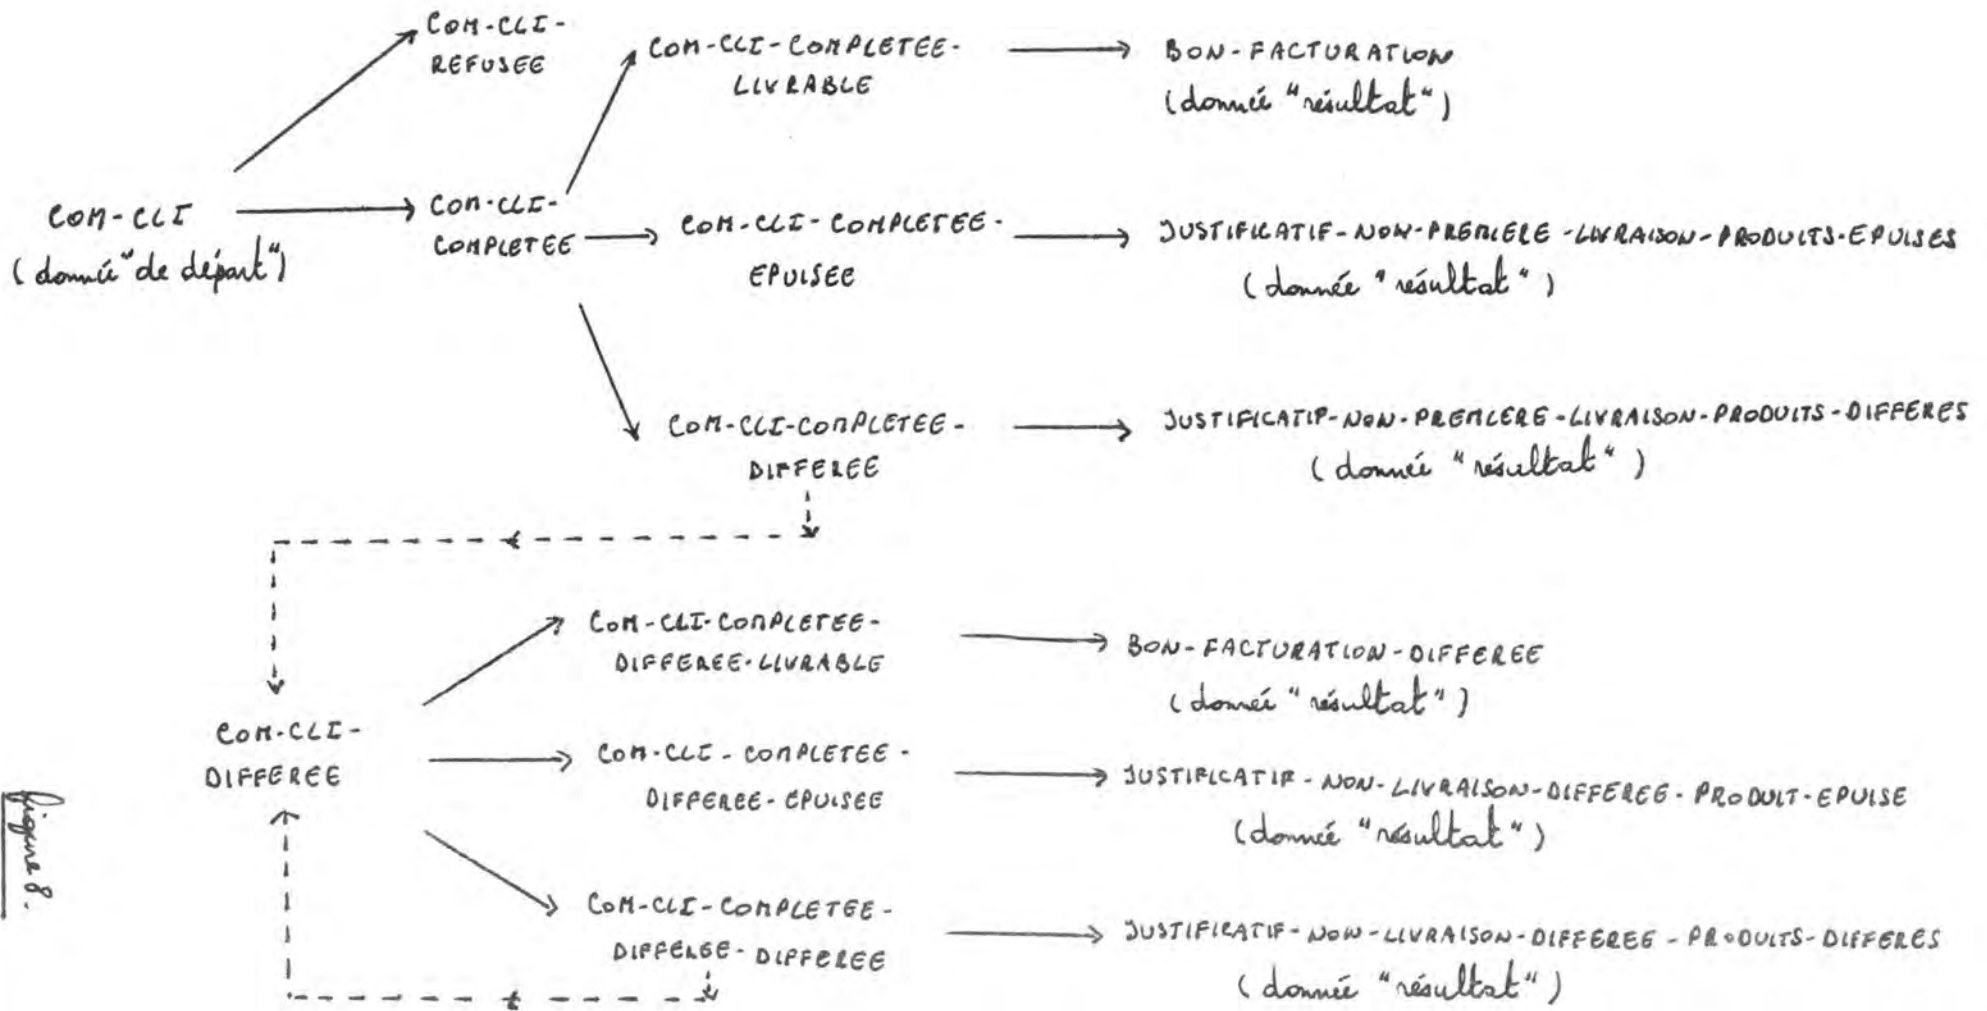 COM-CLI-
REFUSEE
COM-CLI-COMPLETEE-
LIVRABLE
BON-FACTURATION
(donnée "résultat")
COM-CLI
(donnée "de départ")
COM-CLI-
COMPLETEE
COM-CLI-COMPLETEE-
EPUISEE
JUSTIFICATIF-NON-PREMIERE-LIVRAISON-PRODUITS-EPUISES
(donnée "résultat")
COM-CLI-COMPLETEE-
DIFFEREE
JUSTIFICATIF-NON-PREMIERE-LIVRAISON-PRODUITS-DIFFERES
(donnée "résultat")
COM-CLI-COMPLETEE-
DIFFEREE-LIVRABLE
BON-FACTURATION-DIFFEREE
(donnée "résultat")
COM-CLI-
DIFFEREE
COM-CLI-COMPLETEE-
DIFFEREE-EPUISEE
JUSTIFICATIF-NON-LIVRAISON-DIFFEREE-PRODUIT-EPUISE
(donnée "résultat")
COM-CLI-COMPLETEE-
DIFFEREE-DIFFEREE
JUSTIFICATIF-NON-LIVRAISON-DIFFEREE-PRODUITS-DIFFERES
(donnée "résultat")
figure 8.